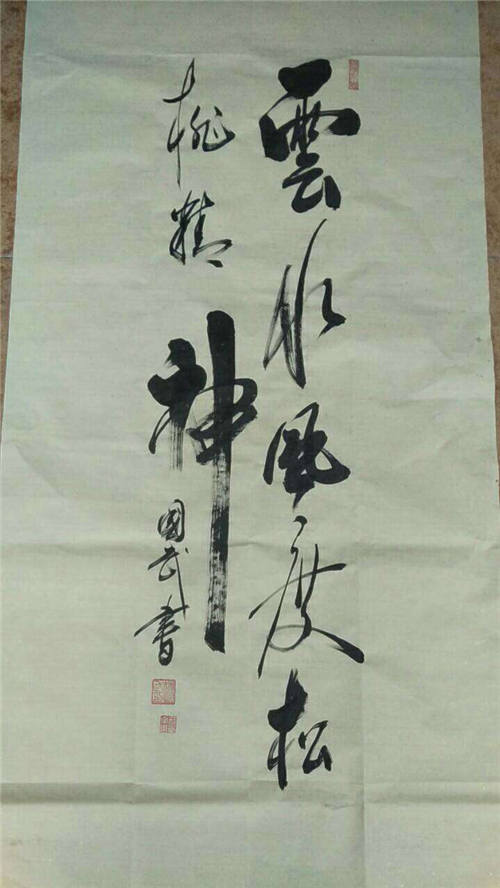 雲水風度松
柏精神
國武書